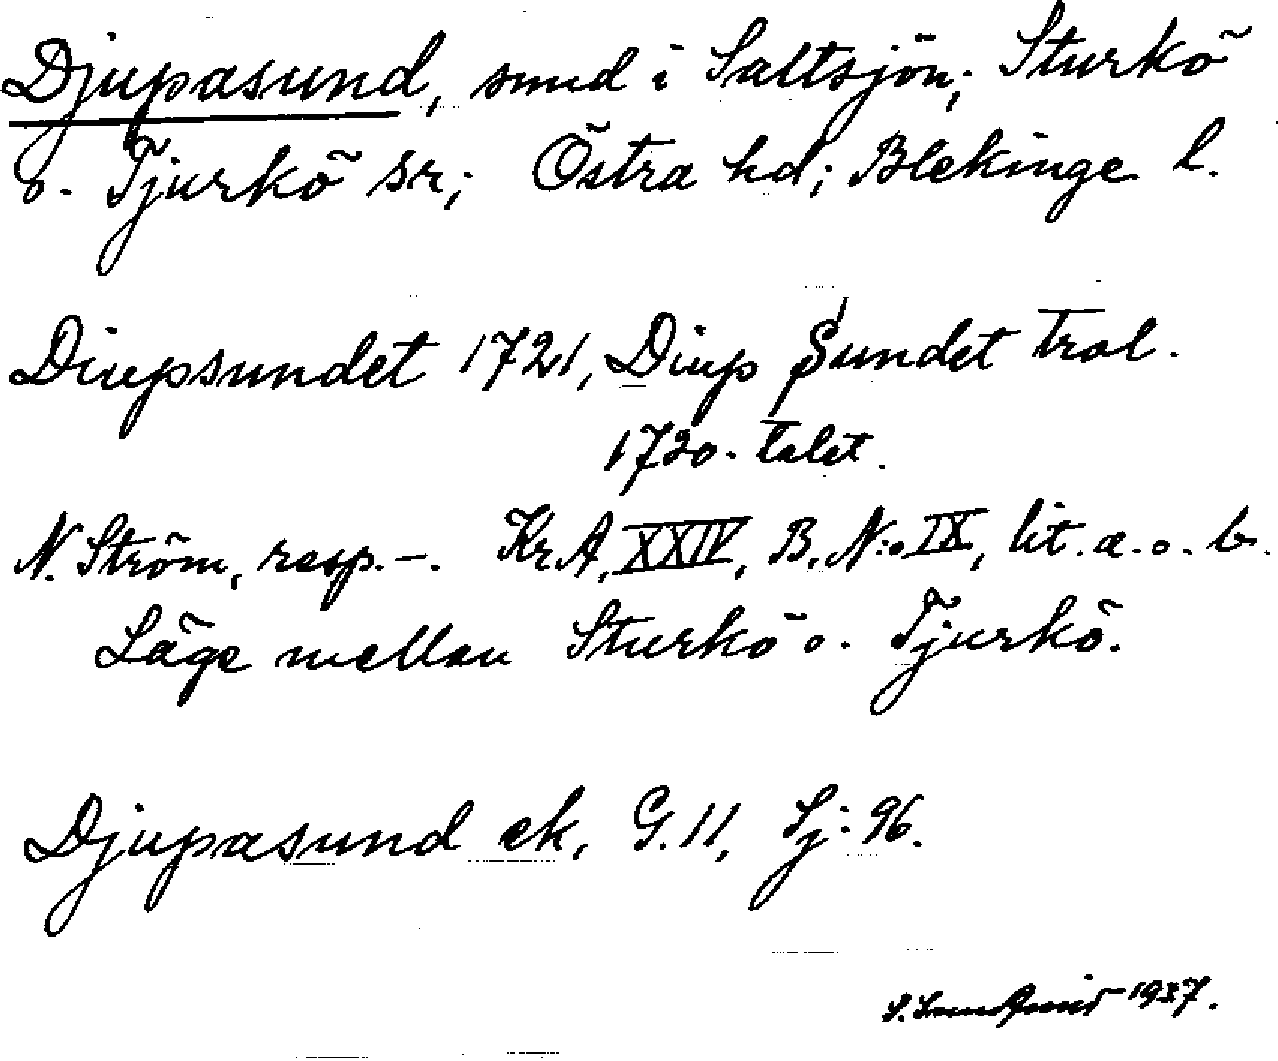 Djupasund, sund i Saltsjön; Sturkö
o. Tjurkö sr; Östra hd; Blekinge l.
Diupsundet 1721, Diup Sundet trol.
1720-talet.
N. Ström, resp. –. Kr.A, XXIV, B, N:o IX, lit. a. o. b.
Läge mellan Sturkö o. Tjurkö.
Djupasund ek, G. 11, Sj: 96.
1937.